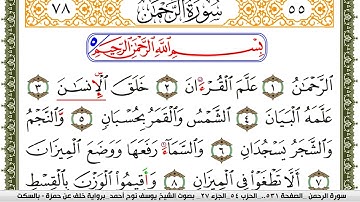 ٧٨ سُورَةُ الرَّحْمَٰن ٥٥
٥ بِسْمِ اللَّهِ الرَّحْمَٰنِ الرَّحِيمِ
الرَّحْمَٰنُ ١ عَلَّمَ الْقُرْءَانَ ٢ خَلَقَ الْإِنسَٰنَ ٣
عَلَّمَهُ الْبَيَانَ ٤ الشَّمْسُ وَالْقَمَرُ بِحُسْبَانٍ ٥ وَالنَّجْمُ
وَالشَّجَرُ يَسْجُدَانِ ٦ وَالسَّمَآءَ رَفَعَهَا وَوَضَعَ الْمِيزَانَ
٧ أَلَّا تَطْغَوْا فِي الْمِيزَانِ ٨ وَأَقِيمُوا الْوَزْنَ بِالْقِسْطِ
سورة الرحمن _الصفحة ٥٣١_ الحزب ٥٤_ الجزء ٢٧_ بصوت الشيخ يوسف نوح أحمد _برواية خلف عن حمزة - بالسكت